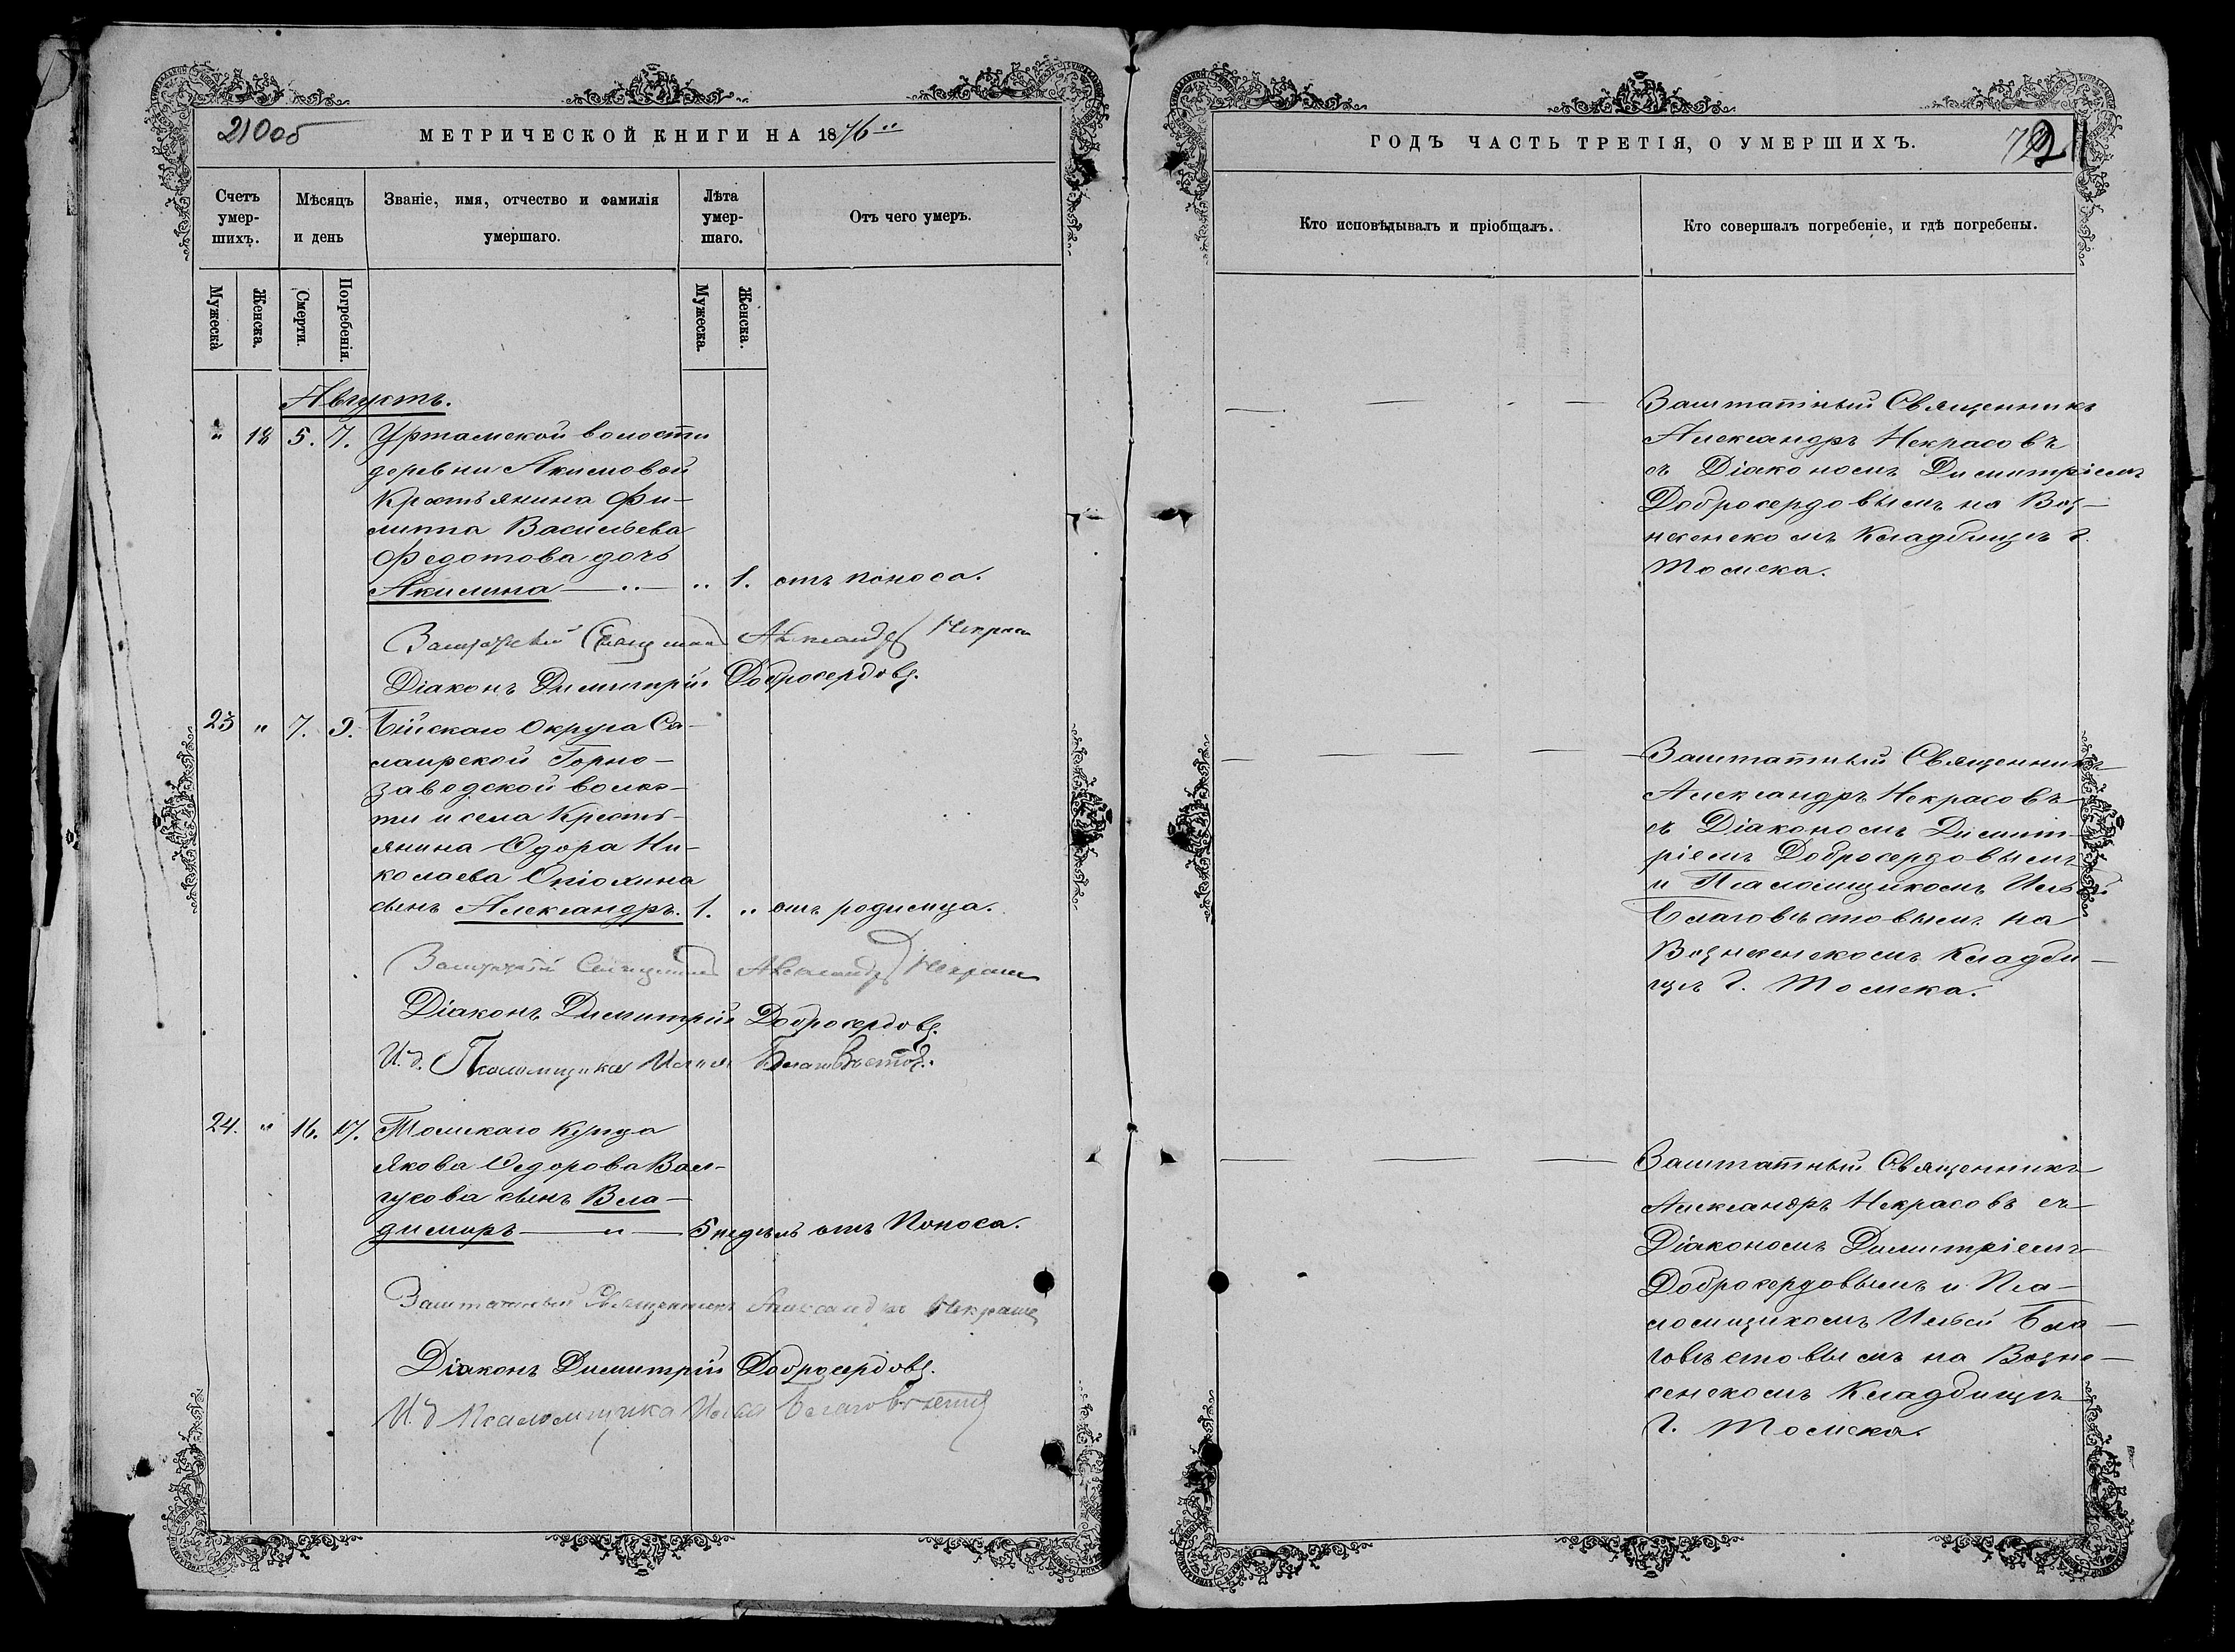 210об
МЕТРИЧЕСКОЙ КНИГИ НА 1876
Счетъ умер-шихъ.
Мѣсяцъ и день
Званіе, имя, отчество и фамилія умершаго.
Лѣта умер-шаго.
Отъ чего умеръ.
Мужеска
Женска.
Смерти.
Погребенія.
Мужеска.
Женска.
Августъ.
" 18 5. 7. Уртамской волости
деревни Акимовой
Крестьянина Фи-
липпа Васильева
Федотова дочь
Акилина — " — " 1. отъ поноса.
Заштатный Священникъ Александръ Некрасовъ
Діаконъ Димитрій Добросердовъ.
23 " 7. 9. Бійскаго Округа Са-
лаирской Горно-
заводской волос-
ти и села Кресть-
янина Ѳдора Ни-
колаева
сынъ Александръ. 1. " отъ родимца.
Заштатный Священникъ Александръ Некрасовъ
Діаконъ Димитрій Добросердовъ.
И. д. Псаломщика Илья Благовѣстовъ.
24. " 16. 17. Томскаго Купца
Якова Ѳедорова
сынъ Вла-
димиръ — " — 5 недѣль отъ Поноса.
Заштатный Священникъ Александръ Некрасовъ
Діаконъ Димитрій Добросердовъ.
И. д Псаломщика Илья Благовѣстовъ
ГОДЪ ЧАСТЬ ТРЕТІЯ, О УМЕРШИХЪ.
211
Кто исповѣдывалъ и пріобщалъ.
Кто совершалъ погребеніе, и гдѣ погребены.
Заштатный Священникъ
Александръ Некрасовъ
съ Діакономъ Димитріемъ
Добросердовымъ на Воз-
несенскомъ Кладбищѣ г.
Томска.
Заштатный Священникъ
Александръ Некрасовъ
съ Діакономъ Димит-
ріемъ Добросердовымъ
и Псаломщикомъ Ильей
Благовѣстовымъ на
Вознесенскомъ Кладби-
щѣ г. Томска.
Заштатный Священникъ
Александръ Некрасовъ съ
Діакономъ Димитріемъ
Добросердовымъ и Пса-
ломщикомъ Ильей Бла-
говѣстовымъ на Возне-
сенскомъ Кладбищѣ
г. Томска.